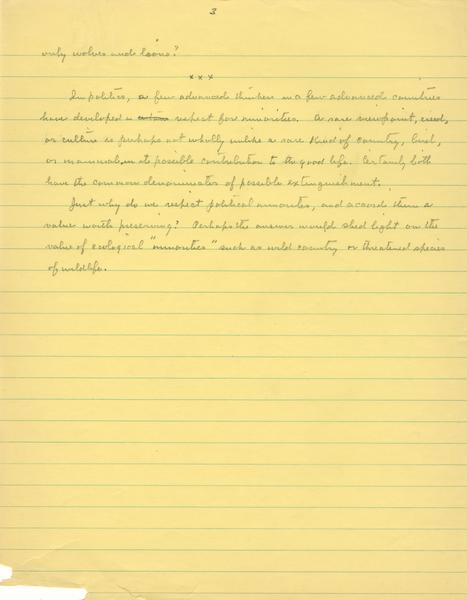 3
only wolves and loons?
x x x
In politics, a few advanced thinkers in a few advanced countries
have developed a certain respect for minorities. A rare viewpoint, creed,
or culture is perhaps not wholly unlike a rare kind of country, bird,
or mammal, in its possible contribution to the good life. Certainly both
have the common denominator of possible extinguishment.
Just why do we respect political minorities, and accord them a
value worth preserving? Perhaps the answer would shed light on the
value of ecological "minorities" such as wild country or threatened species
of wildlife.